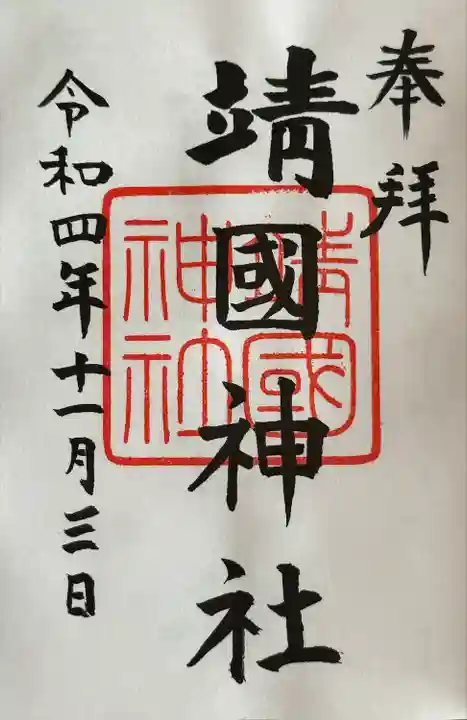 奉拝
靖國神社
靖國
神社
令和四年十一月三日